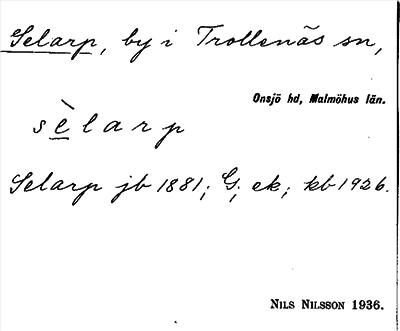 Selarp, by i Trollenäs sn,
Onsjö hd, Malmöhus län.
sè̲larp
Selarp jb 1881; G; ek; kb 1926.
NILS NILSSON 1936.